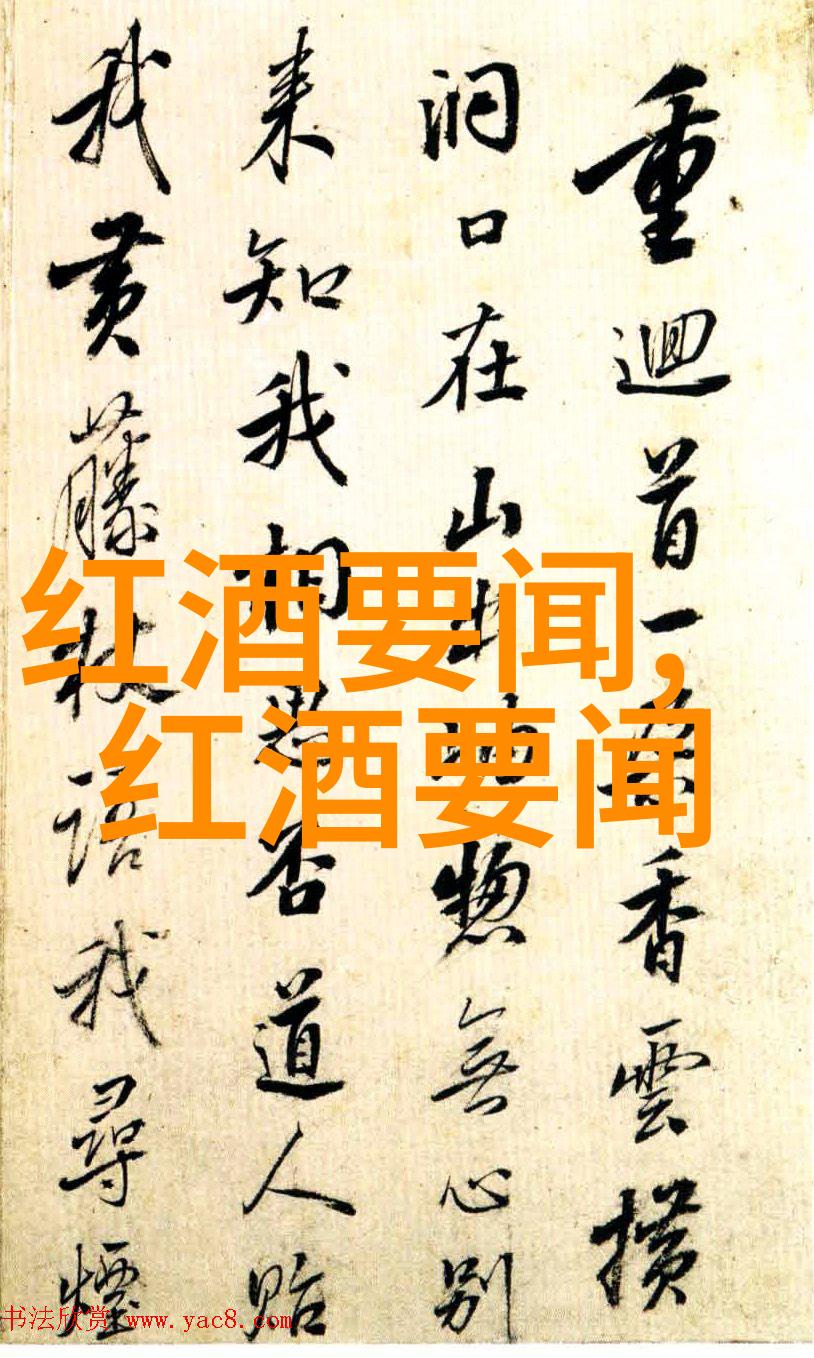 重迴首一香雲横
洞口在山惣無心别
来知我相思否道人贻
我黄藤杖語我尋煙
红酒要闻,
红酒要闻
书法欣赏 www.yac8.com